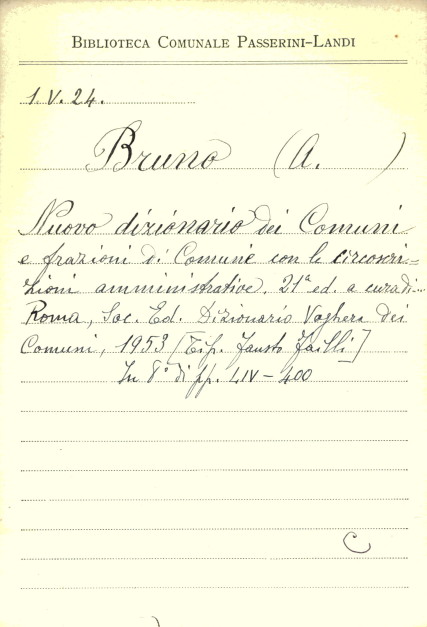 BIBLIOTECA COMUNALE PASSERINI-LANDI
1.V.24.
Bruno (A. )
Nuovo dizionario dei Comuni
e frazioni di Comune con le circoscri=
zioni amministrative. 21ª ed. a cura di...
Roma, Soc. Ed. Dizionario Voghera dei
Comuni, 1953 [Tip. Fausto Failli]
In 8° di pp. LIV-400
C